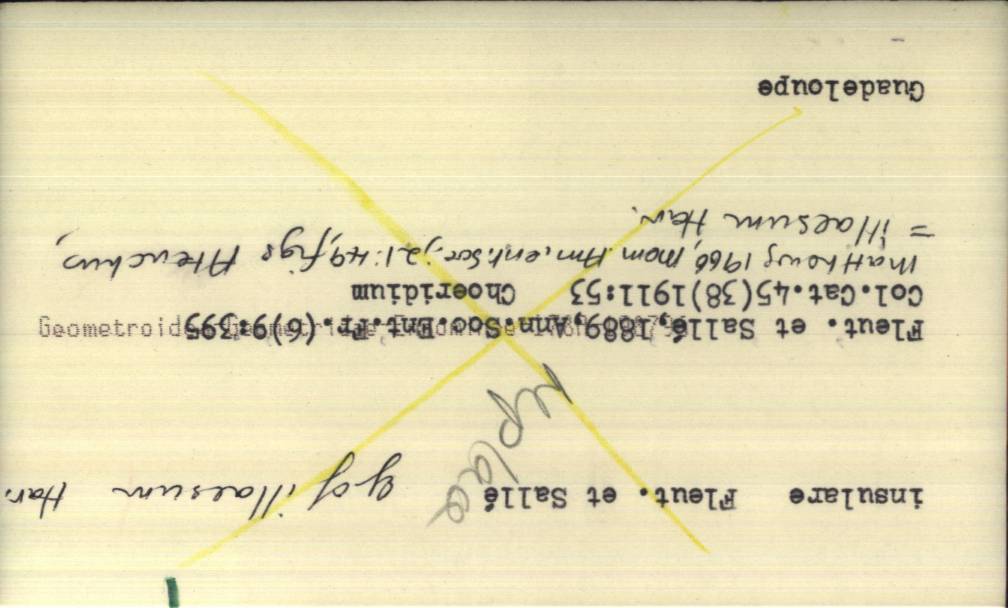 insulare Fleut. et Sallé g of illaesum Har.
replace
Fleut. et Sallé, 1889, Ann.Soc.Ent.Fr.(6)9:395
Col.Cat.45(38)1911:53 Choeridium
Matthews 1966, Mom. Am. ent. Soc., 21:49, figs Ateuchus,
= illaesum Har.
Guadeloupe